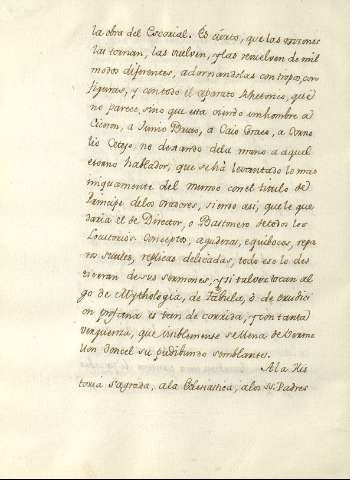 la obra del Escorial. Es cierto, que las razones
las tornan, las vuelven, y las revuelven de mil
modos diferentes, adornandolas con tropos, con
figuras, y con todo el aparato Rhetorico, que
no parece, sino que esta oiendo un hombre a
Ciceron, a Junio Bruto, a Caio Graco, a Corne
lio Cetego, no dexando de la mano a aquel
eterno hablador, que se há levantado lo mas
iniquamente del mundo con el titulo de
Principe de los oradores, siendo asi, que le que
daria el de Director, o Bastonero de todos los
Locutorios. Conceptos, agudezas, equibocos, repa
ros sutiles, replicas delicadas, todo eso lo des
tierran de sus sermones, y si tal vez tocan al
go de Mythologia, de Fabula, ó de erudici
on profana es tan de corrida, y con tanta
verguenza, que visiblemente se llena de Berme
llon doncel su pudibundo semblante.
A la His
toria Sagrada, a la Eclesiastica, a los SS. Padres